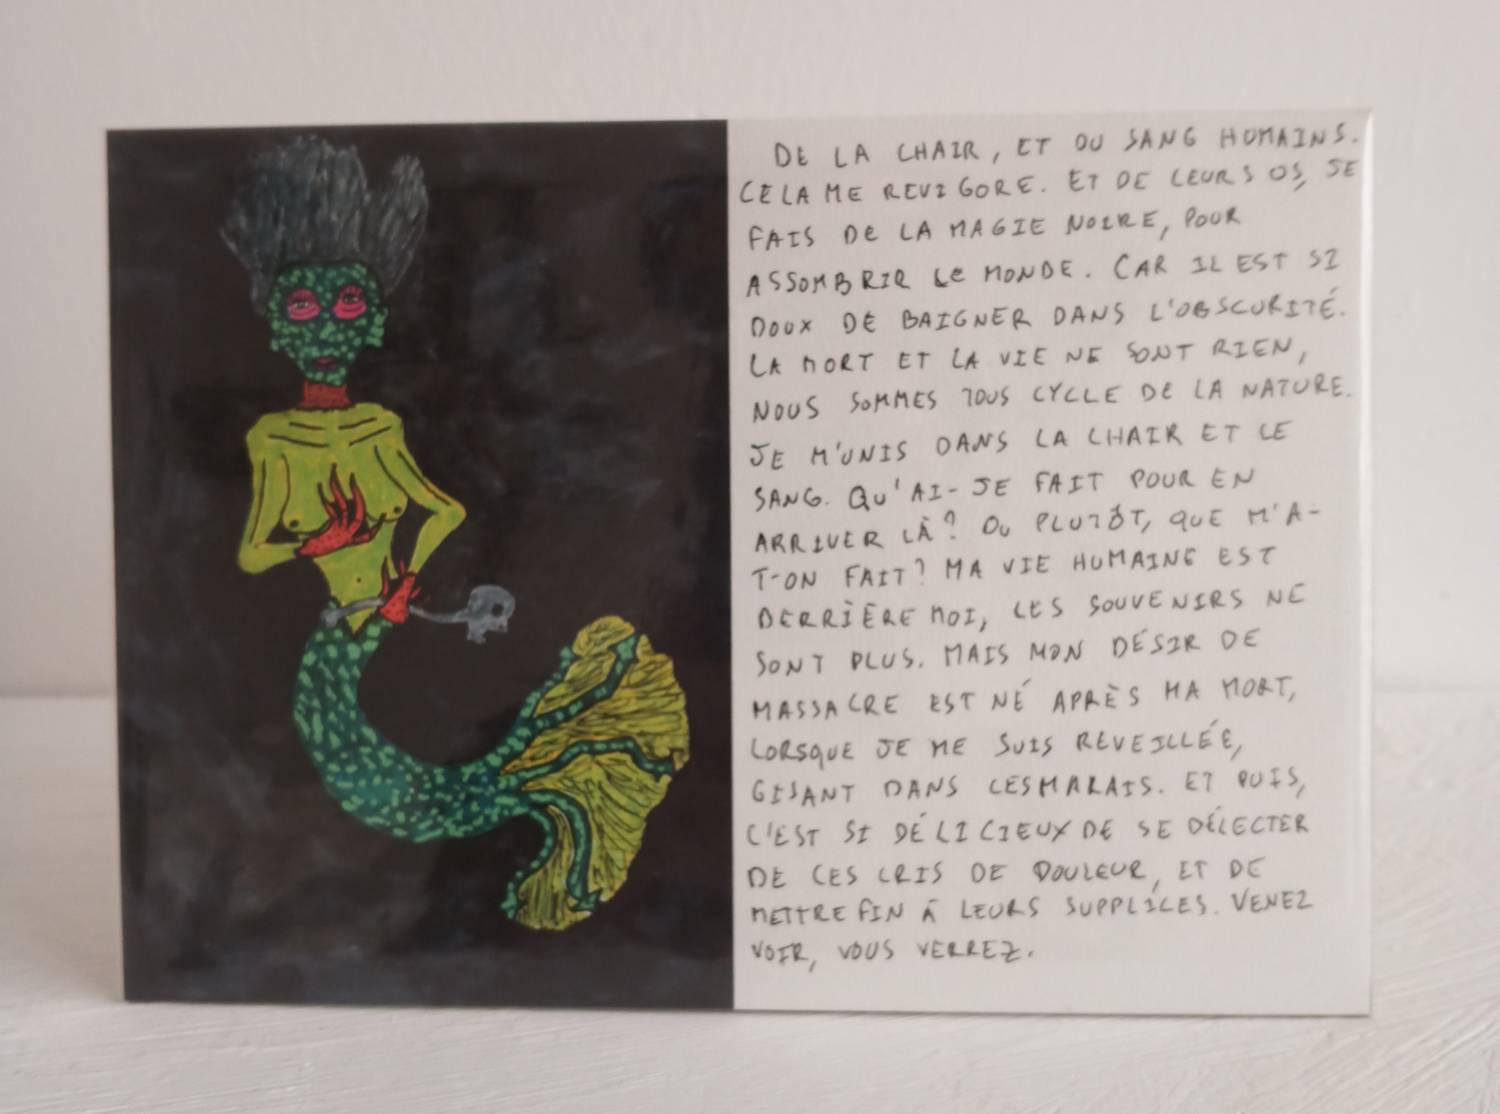 DE LA CHAIR, ET DU SANG HUMAINS.
CELA ME REVIGORE. ET DE LEURS OS, JE
FAIS DE LA MAGIE NOIRE, POUR
ASSOMBRIR LE MONDE. CAR IL EST SI
DOUX DE BAIGNER DANS L'OBSCURITÉ.
LA MORT ET LA VIE NE SONT RIEN,
NOUS SOMMES TOUS CYCLE DE LA NATURE.
JE M'UNIS DANS LA CHAIR ET LE
SANG. QU'AI-JE FAIT POUR EN
ARRIVER LÀ? OU PLUTÔT, QUE M'A-
T-ON FAIT? MA VIE HUMAINE EST
DERRIÈRE MOI, LES SOUVENIRS NE
SONT PLUS. MAIS MON DÉSIR DE
MASSACRE EST NÉ APRÈS MA MORT,
LORSQUE JE ME SUIS REVEILLÉE,
GISANT DANS LES MARAIS. ET PUIS,
C'EST SI DÉLICIEUX DE SE DÉLECTER
DE CES CRIS DE DOULEUR, ET DE
METTRE FIN À LEURS SUPPLICES. VENEZ
VOIR, VOUS VERREZ.